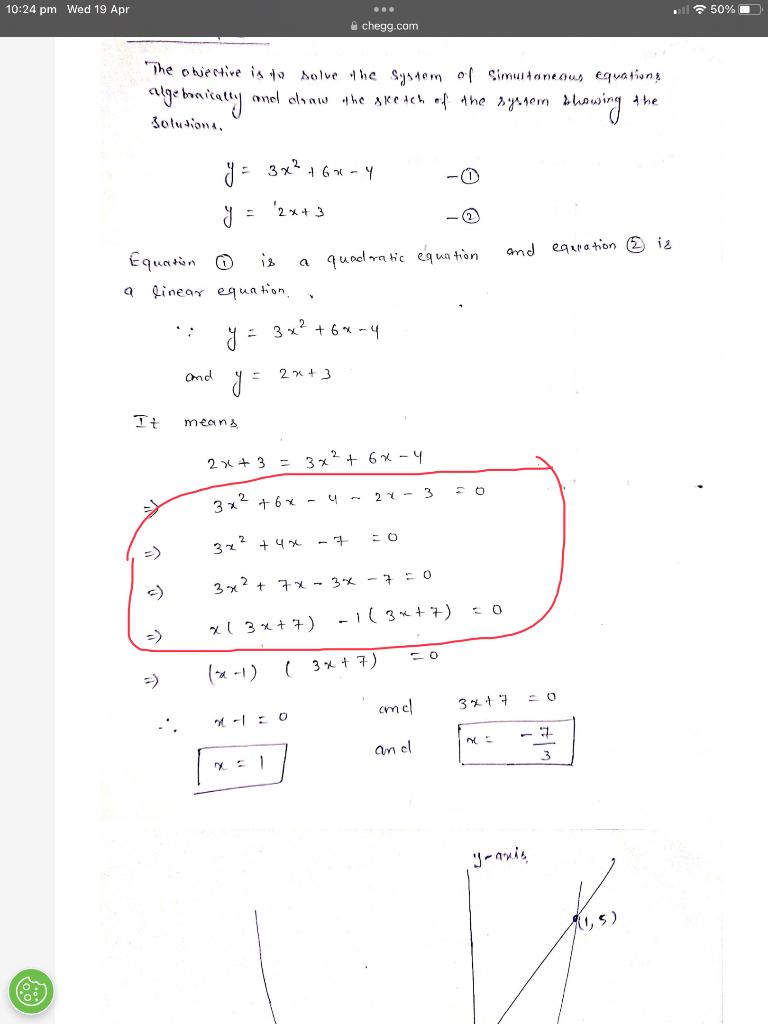 10:24 pm Wed 19 Apr
50%
chegg.com
The objective is to solve the system of simultaneous equations
algebraically and draw the sketch of the system showing the
solutions.
y = 3x² + 6x - 4 - ①
y = 2x + 3 - ②
Equation ① is a quadratic equation and equation ② is
a linear equation.
∵ y = 3x² + 6x - 4
and y = 2x + 3
It means
2x + 3 = 3x² + 6x - 4
⇒ 3x² + 6x - 4 - 2x - 3 = 0
⇒ 3x² + 4x - 7 = 0
⇒ 3x² + 7x - 3x - 7 = 0
⇒ x(3x+7) - 1(3x+7) = 0
⇒ (x-1) (3x+7) = 0
∴ x-1 = 0 and 3x+7 = 0
x = 1 and x = -7/3
y-axis
(1,5)